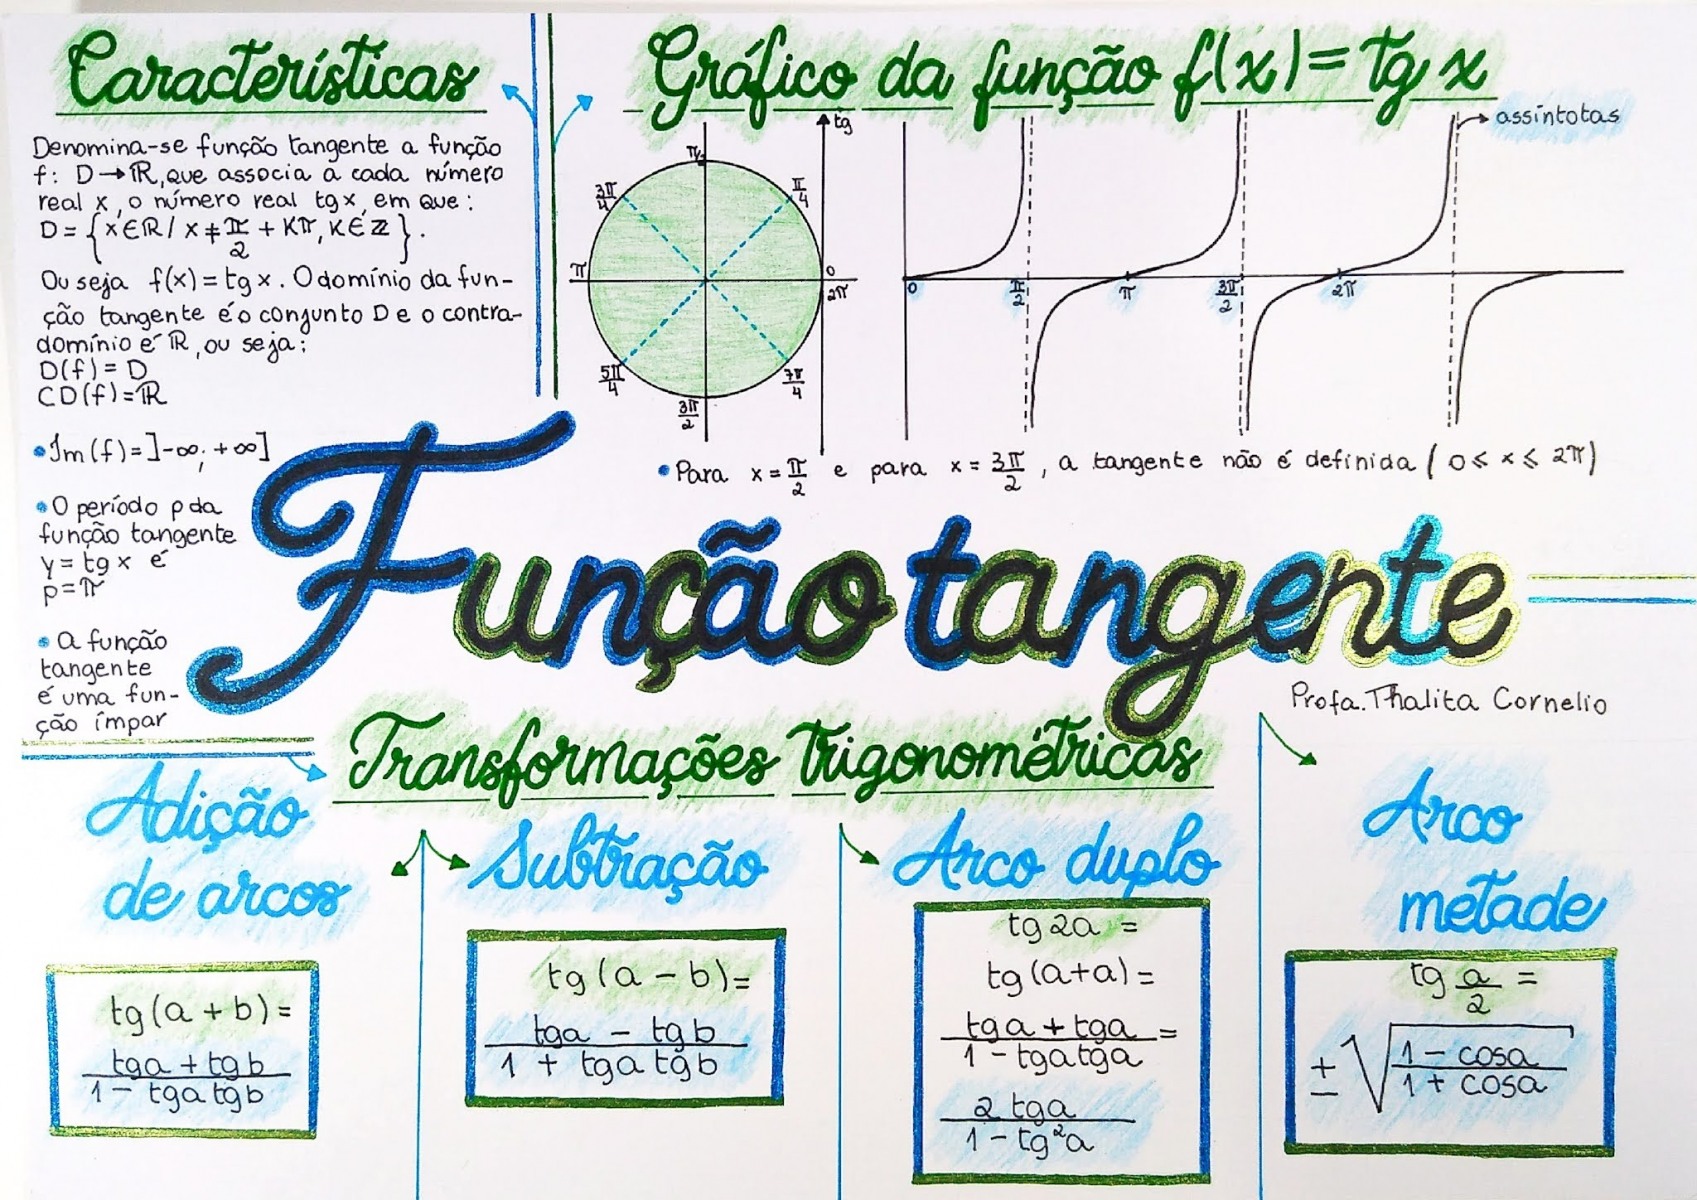 Características
Denomina-se função tangente a função
f: D→ℝ, que associa a cada número
real x, o número real tg x, em que:
D = {x∈ℝ / x ≠ π/2 + Kπ, K∈ℤ}.
Ou seja f(x) = tg x. O domínio da fun-
ção tangente é o conjunto D e o contra-
domínio é ℝ, ou seja:
D(f) = D
CD(f) = ℝ
• Im(f) = ]-∞; +∞]
• O período p da
função tangente
y = tg x é
p = π
• A função
tangente
é uma fun-
ção ímpar
Gráfico da função f(x) = tg x
tg
assíntotas
π/2
3π/4
π/4
π
0
2π
5π/4
7π/4
3π/2
0
π/2
π
3π/2
2π
• Para x = π/2 e para x = 3π/2, a tangente não é definida (0 ≤ x ≤ 2π)
Função tangente
Profa. Thalita Cornelio
Transformações trigonométricas
Adição
de arcos
tg(a + b) =
tga + tgb
1 - tga tgb
Subtração
tg(a - b) =
tga - tgb
1 + tga tgb
Arco duplo
tg 2a =
tg(a+a) =
tga + tga =
1 - tga tga
2 tga
1 - tg²a
Arco
metade
tg a/2 =
± √
1 - cosa
1 + cosa